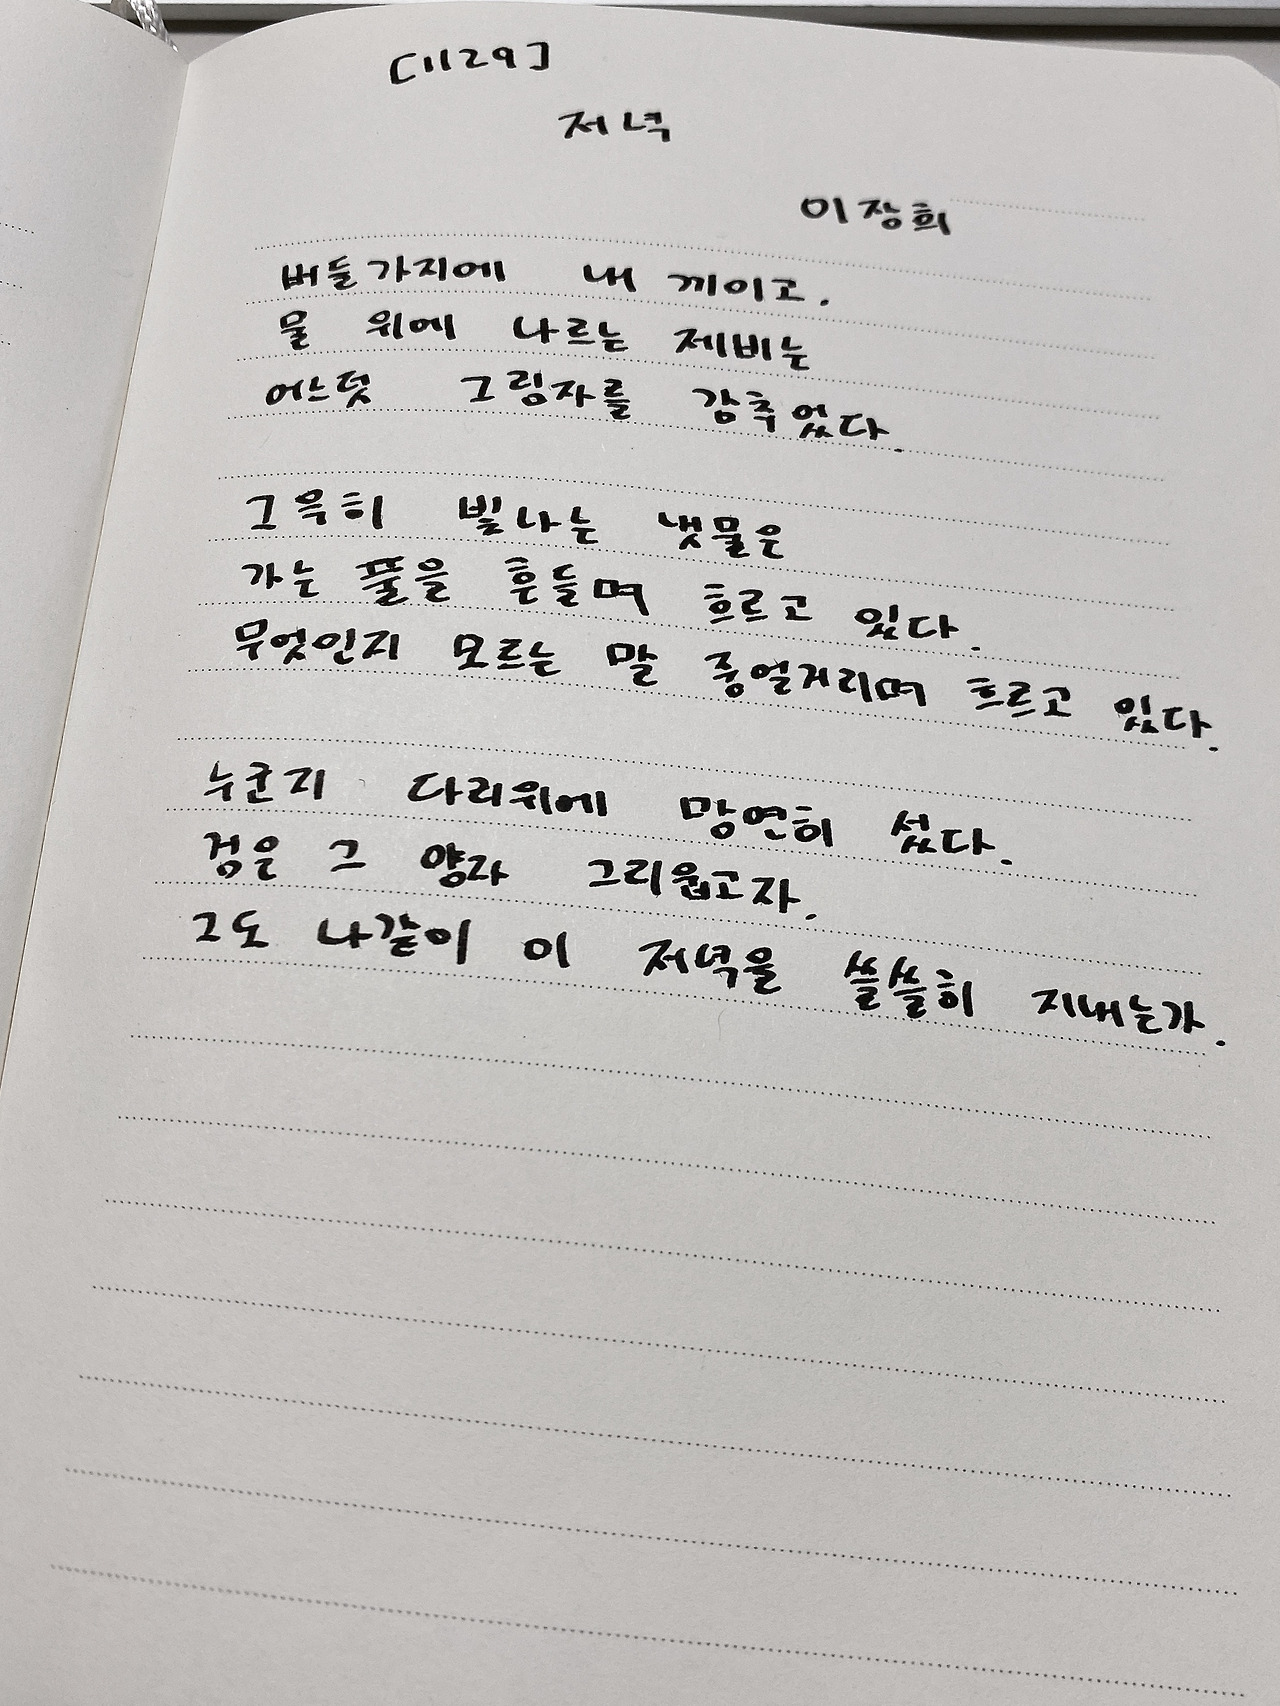 [1129]
저녁
이장희
버들가지에 내 끼이고.
물 위에 나르는 제비는
어느덧 그림자를 감추었다.
그윽히 빛나는 냇물은
가는 풀을 흔들며 흐르고 있다.
무엇인지 모르는 말 중얼거리며 흐르고 있다.
누군지 다리위에 망연히 섰다.
검은 그 양자 그리웁고자.
그도 나같이 이 저녁을 쓸쓸히 지내는가.